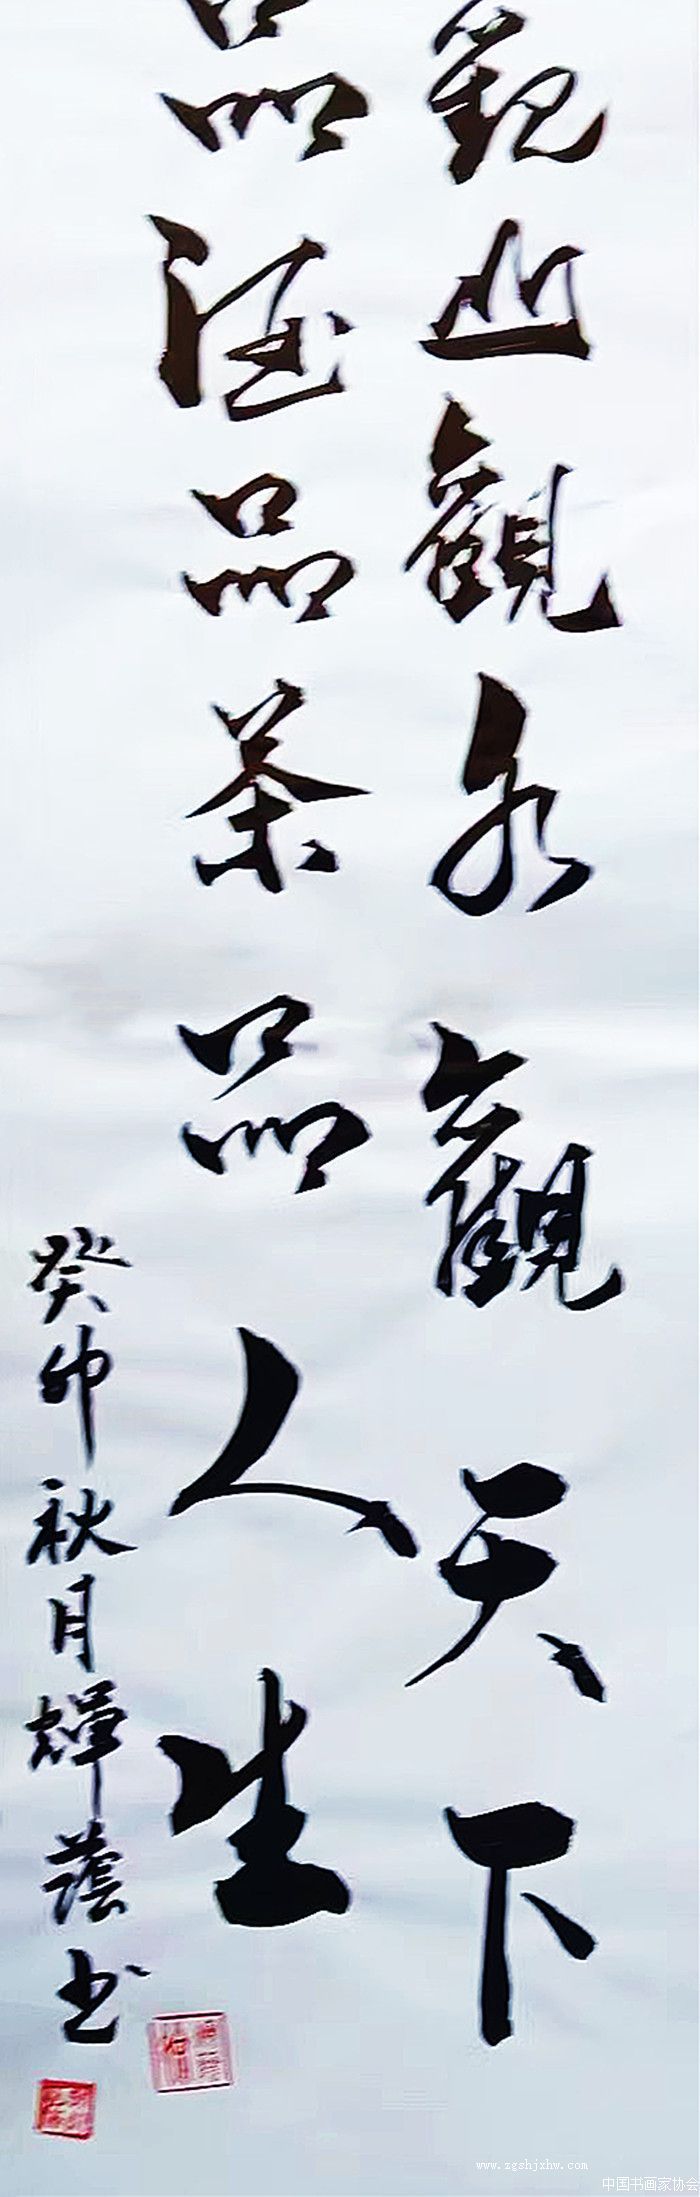 觀山觀水觀天下
品酒品茶品人生
癸卯秋月輝蔭书
www.zgshjxhw.com
中国书画家协会